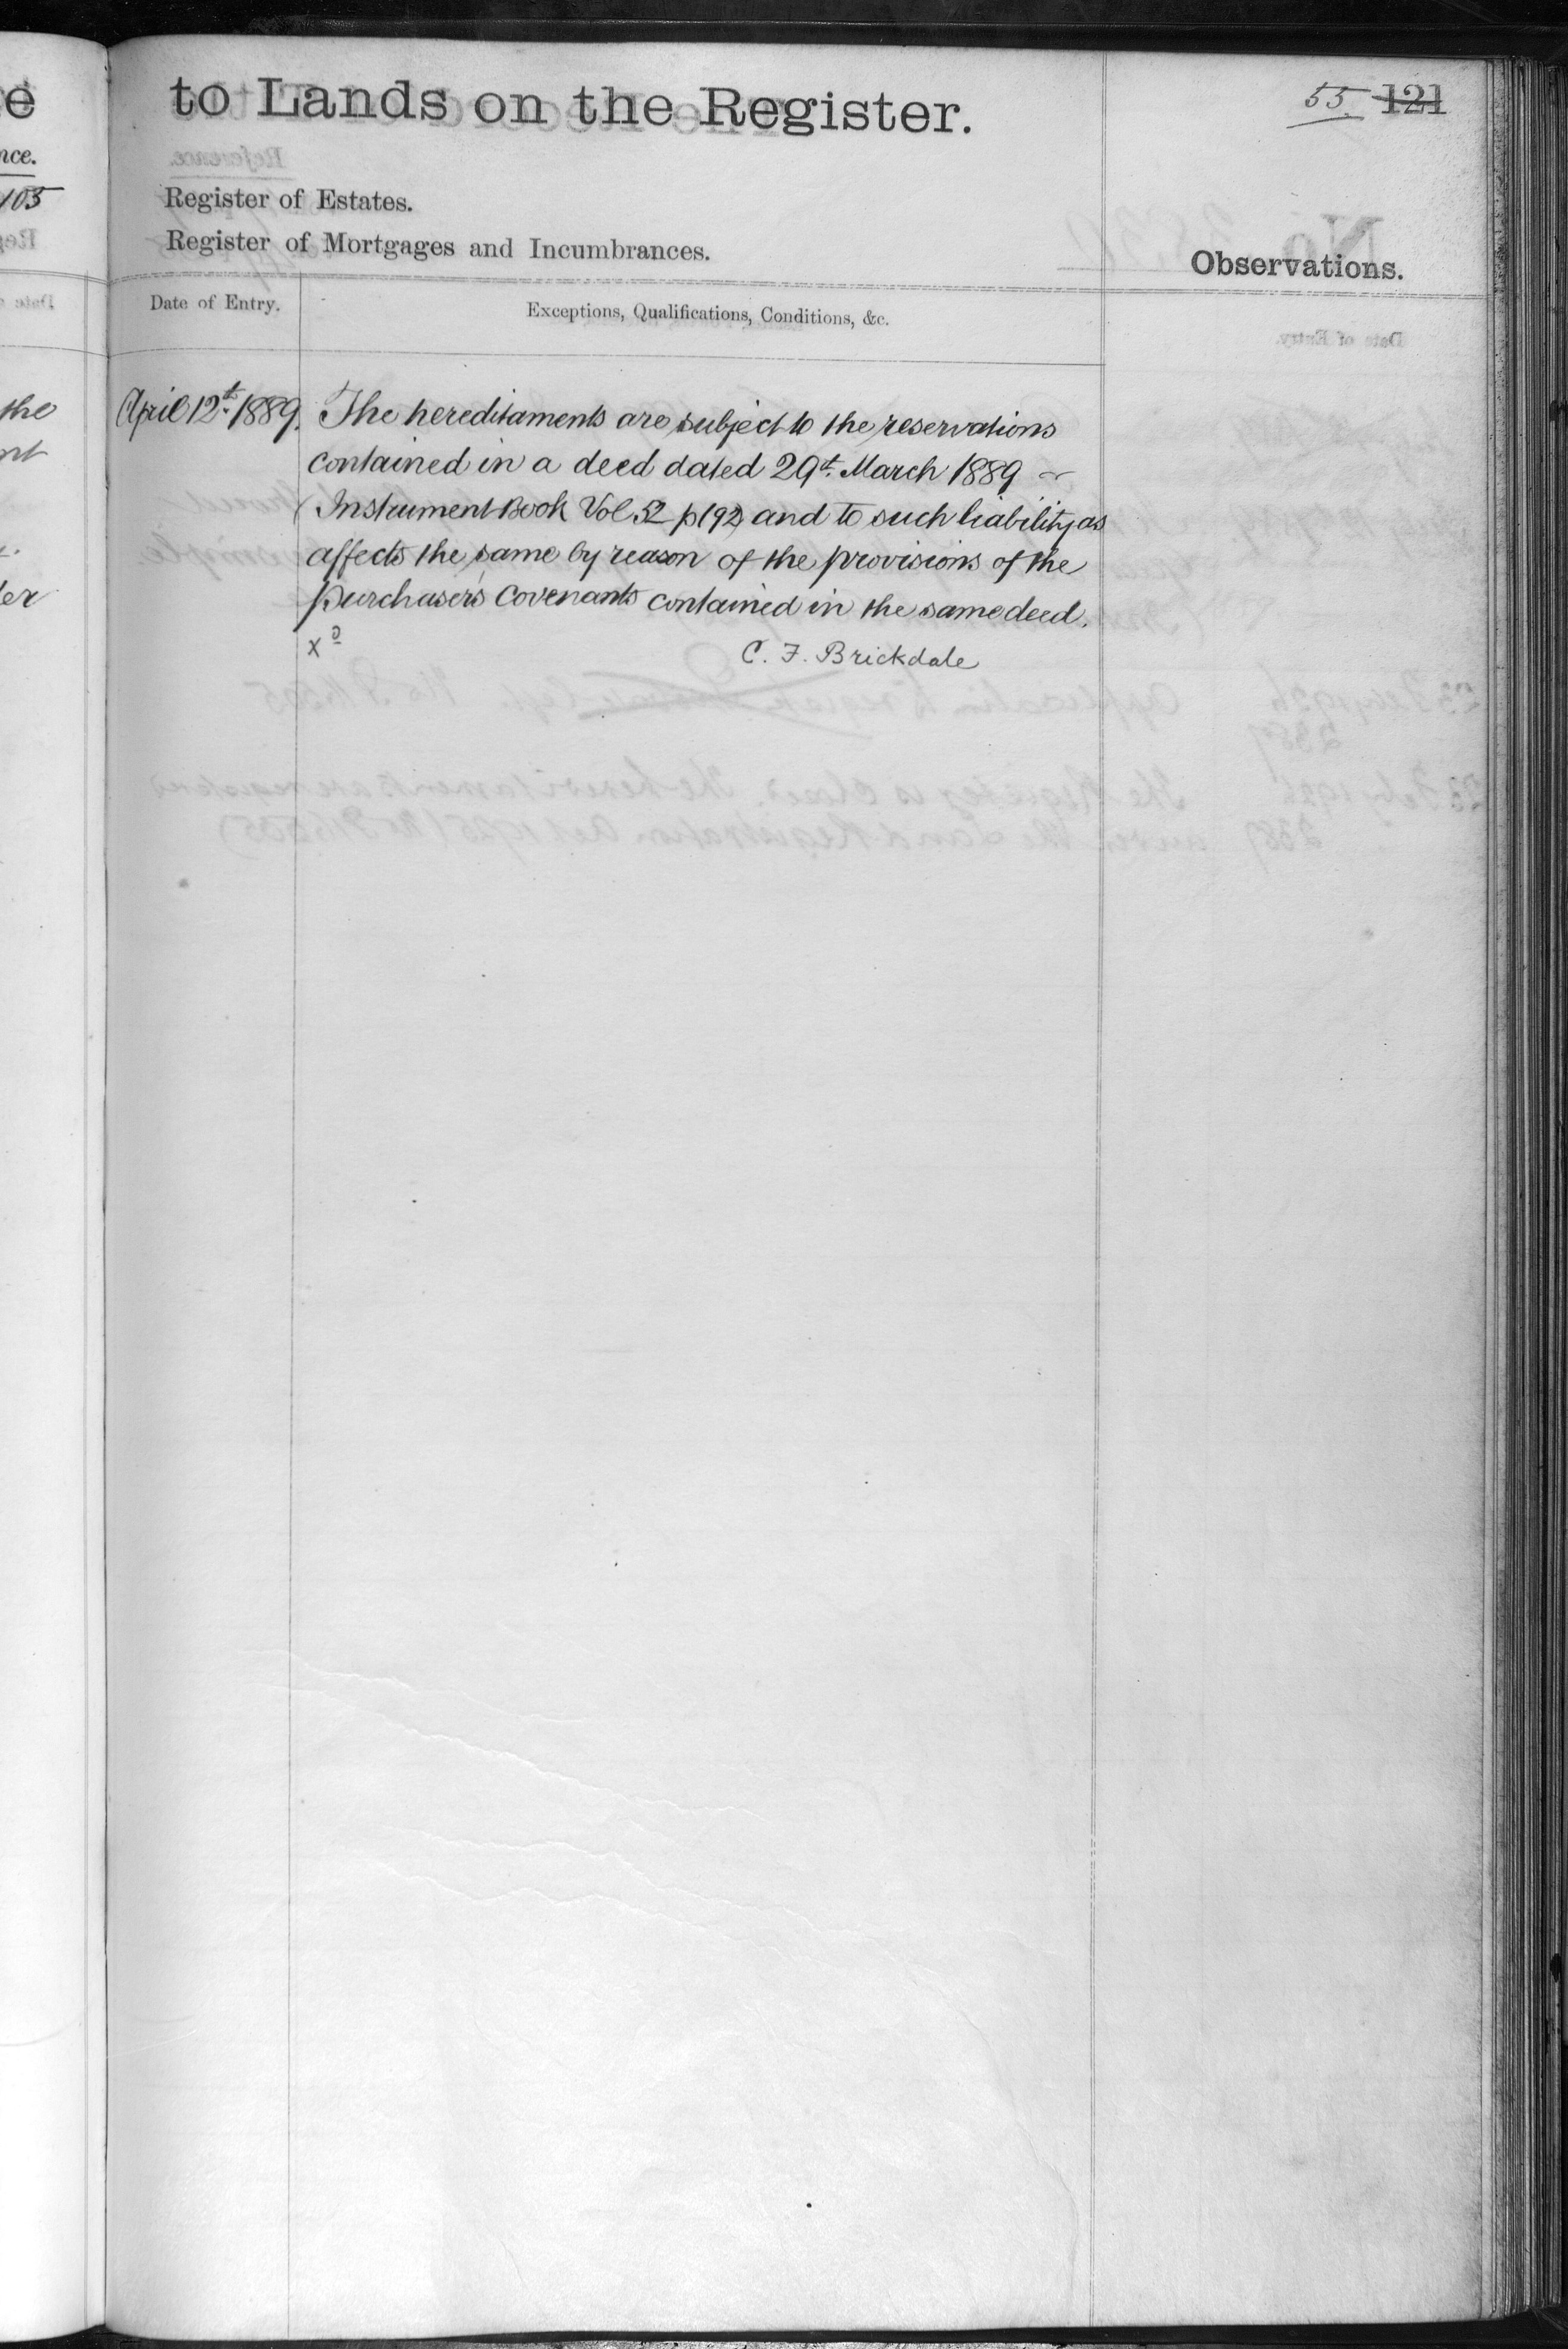 to Lands on the Register.
55. 121
Register of Estates.
Register of Mortgages and Incumbrances.
Observations.
Date of Entry.
Exceptions, Qualifications, Conditions, &c.
April 12th 1889.
The hereditaments are subject to the reservations
contained in a deed dated 29th March 1889
(Instrument Book Vol 52 p 192) and to such liability as
affects the same by reason of the provisions of the
purchaser's Covenants contained in the same deed.
xd
C. F. Brickdale
e
nce.
105
the
nt
er